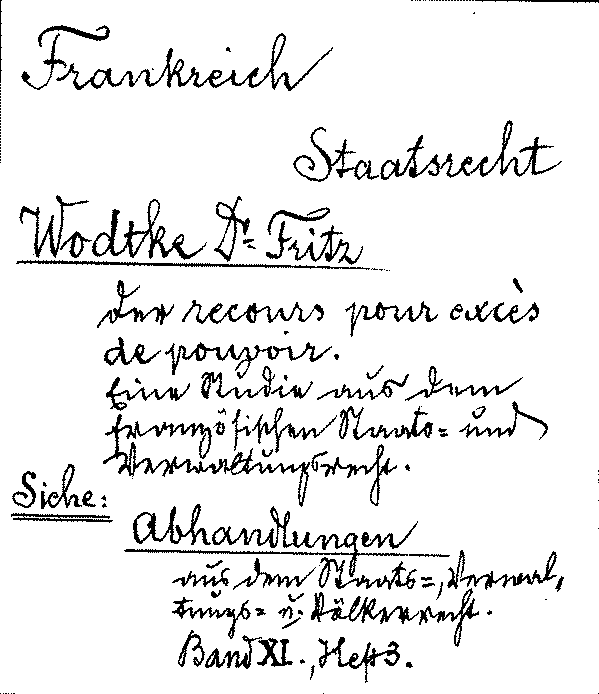 Frankreich
Staatsrecht
Wodtke Dr= Fritz
Der recours pour excès
de pouvoir.
Eine Studie aus dem
französischen Staats= und
Verwaltungsrecht.
Siehe:
Abhandlungen
aus dem Staats=, Verwal,
tungs= u. Völkerrecht.
Band XI., Heft 3.